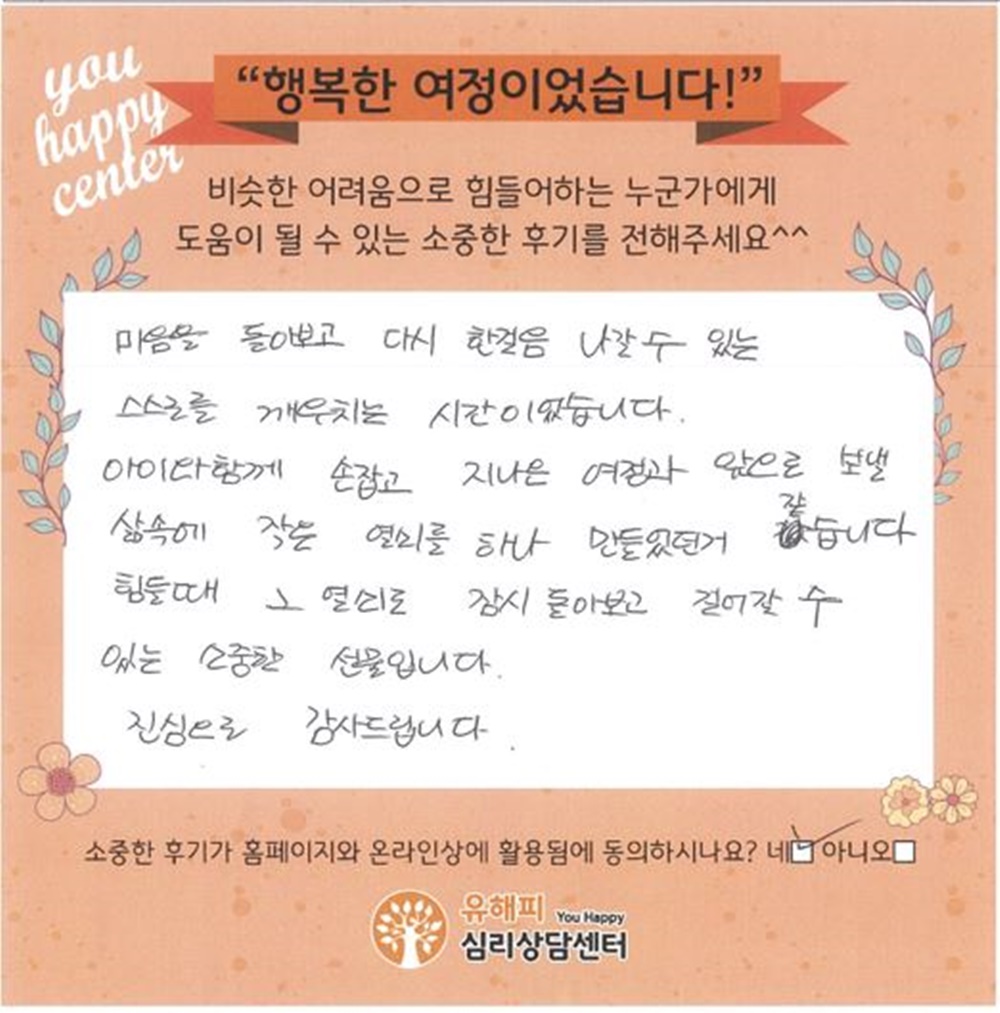 you
happy
center
“행복한 여정이었습니다!”
비슷한 어려움으로 힘들어하는 누군가에게
도움이 될 수 있는 소중한 후기를 전해주세요^^
마음을 돌아보고 다시 한걸음 나갈 수 있는
스스로를 깨우치는 시간이었습니다.
아이와함께 손잡고 지나온 여정과 앞으로 보낼
삶속에 작은 열쇠를 하나 만들었던거 같습니다
힘들때 그 열쇠로 잠시 돌아보고 걸어갈 수
있는 소중한 선물입니다.
진심으로 감사드립니다.
소중한 후기가 홈페이지와 온라인상에 활용됨에 동의하시나요? 네 아니오
유해피 You Happy
심리상담센터